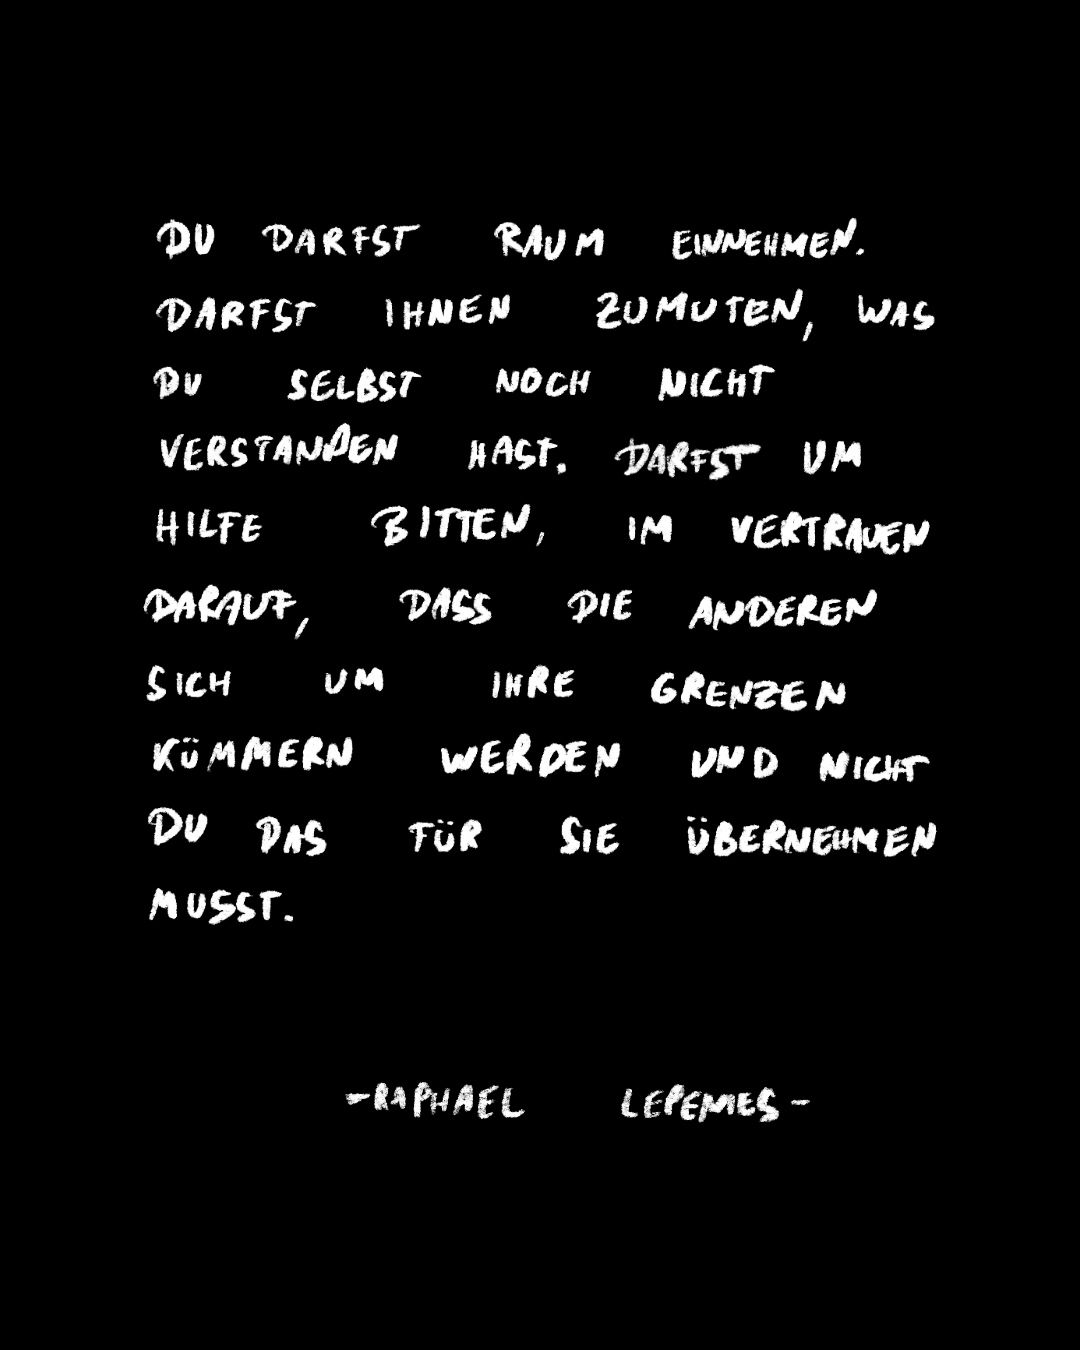 DU DARFST RAUM EINNEHMEN.
DARFST IHNEN ZUMUTEN, WAS
DU SELBST NOCH NICHT
VERSTANDEN HAST. DARFST UM
HILFE BITTEN, IM VERTRAUEN
DARAUF, DASS DIE ANDEREN
SICH UM IHRE GRENZEN
KÜMMERN WERDEN UND NICHT
DU DAS FÜR SIE ÜBERNEHMEN
MUSST.
-RAPHAEL LEPENIES-